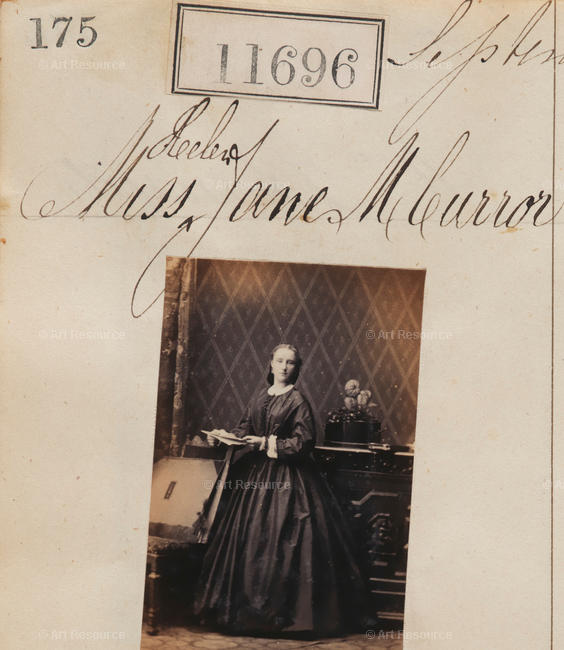 175
11696
Septem
Helen
Miss Jane M Curror
© Art Resource
© Art Resource
© Art Resource
© Art Resource
© Art Resource
© Art Resource
© Art Resource
© Art Resource
© Art Resource
© Art Resource